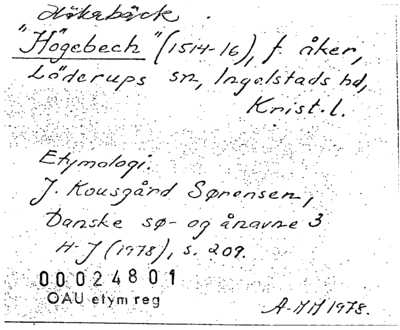 Hökabäck
"Högebech" (1514-16), f. åker,
Löderups sn, Ingelstads hd,
Krist. l.
Etymologi:
J. Kousgård Sørensen,
Danske sø- og ånavne 3
H-J (1978), s. 209.
00024801
OAU etym reg
A-MH 1978.